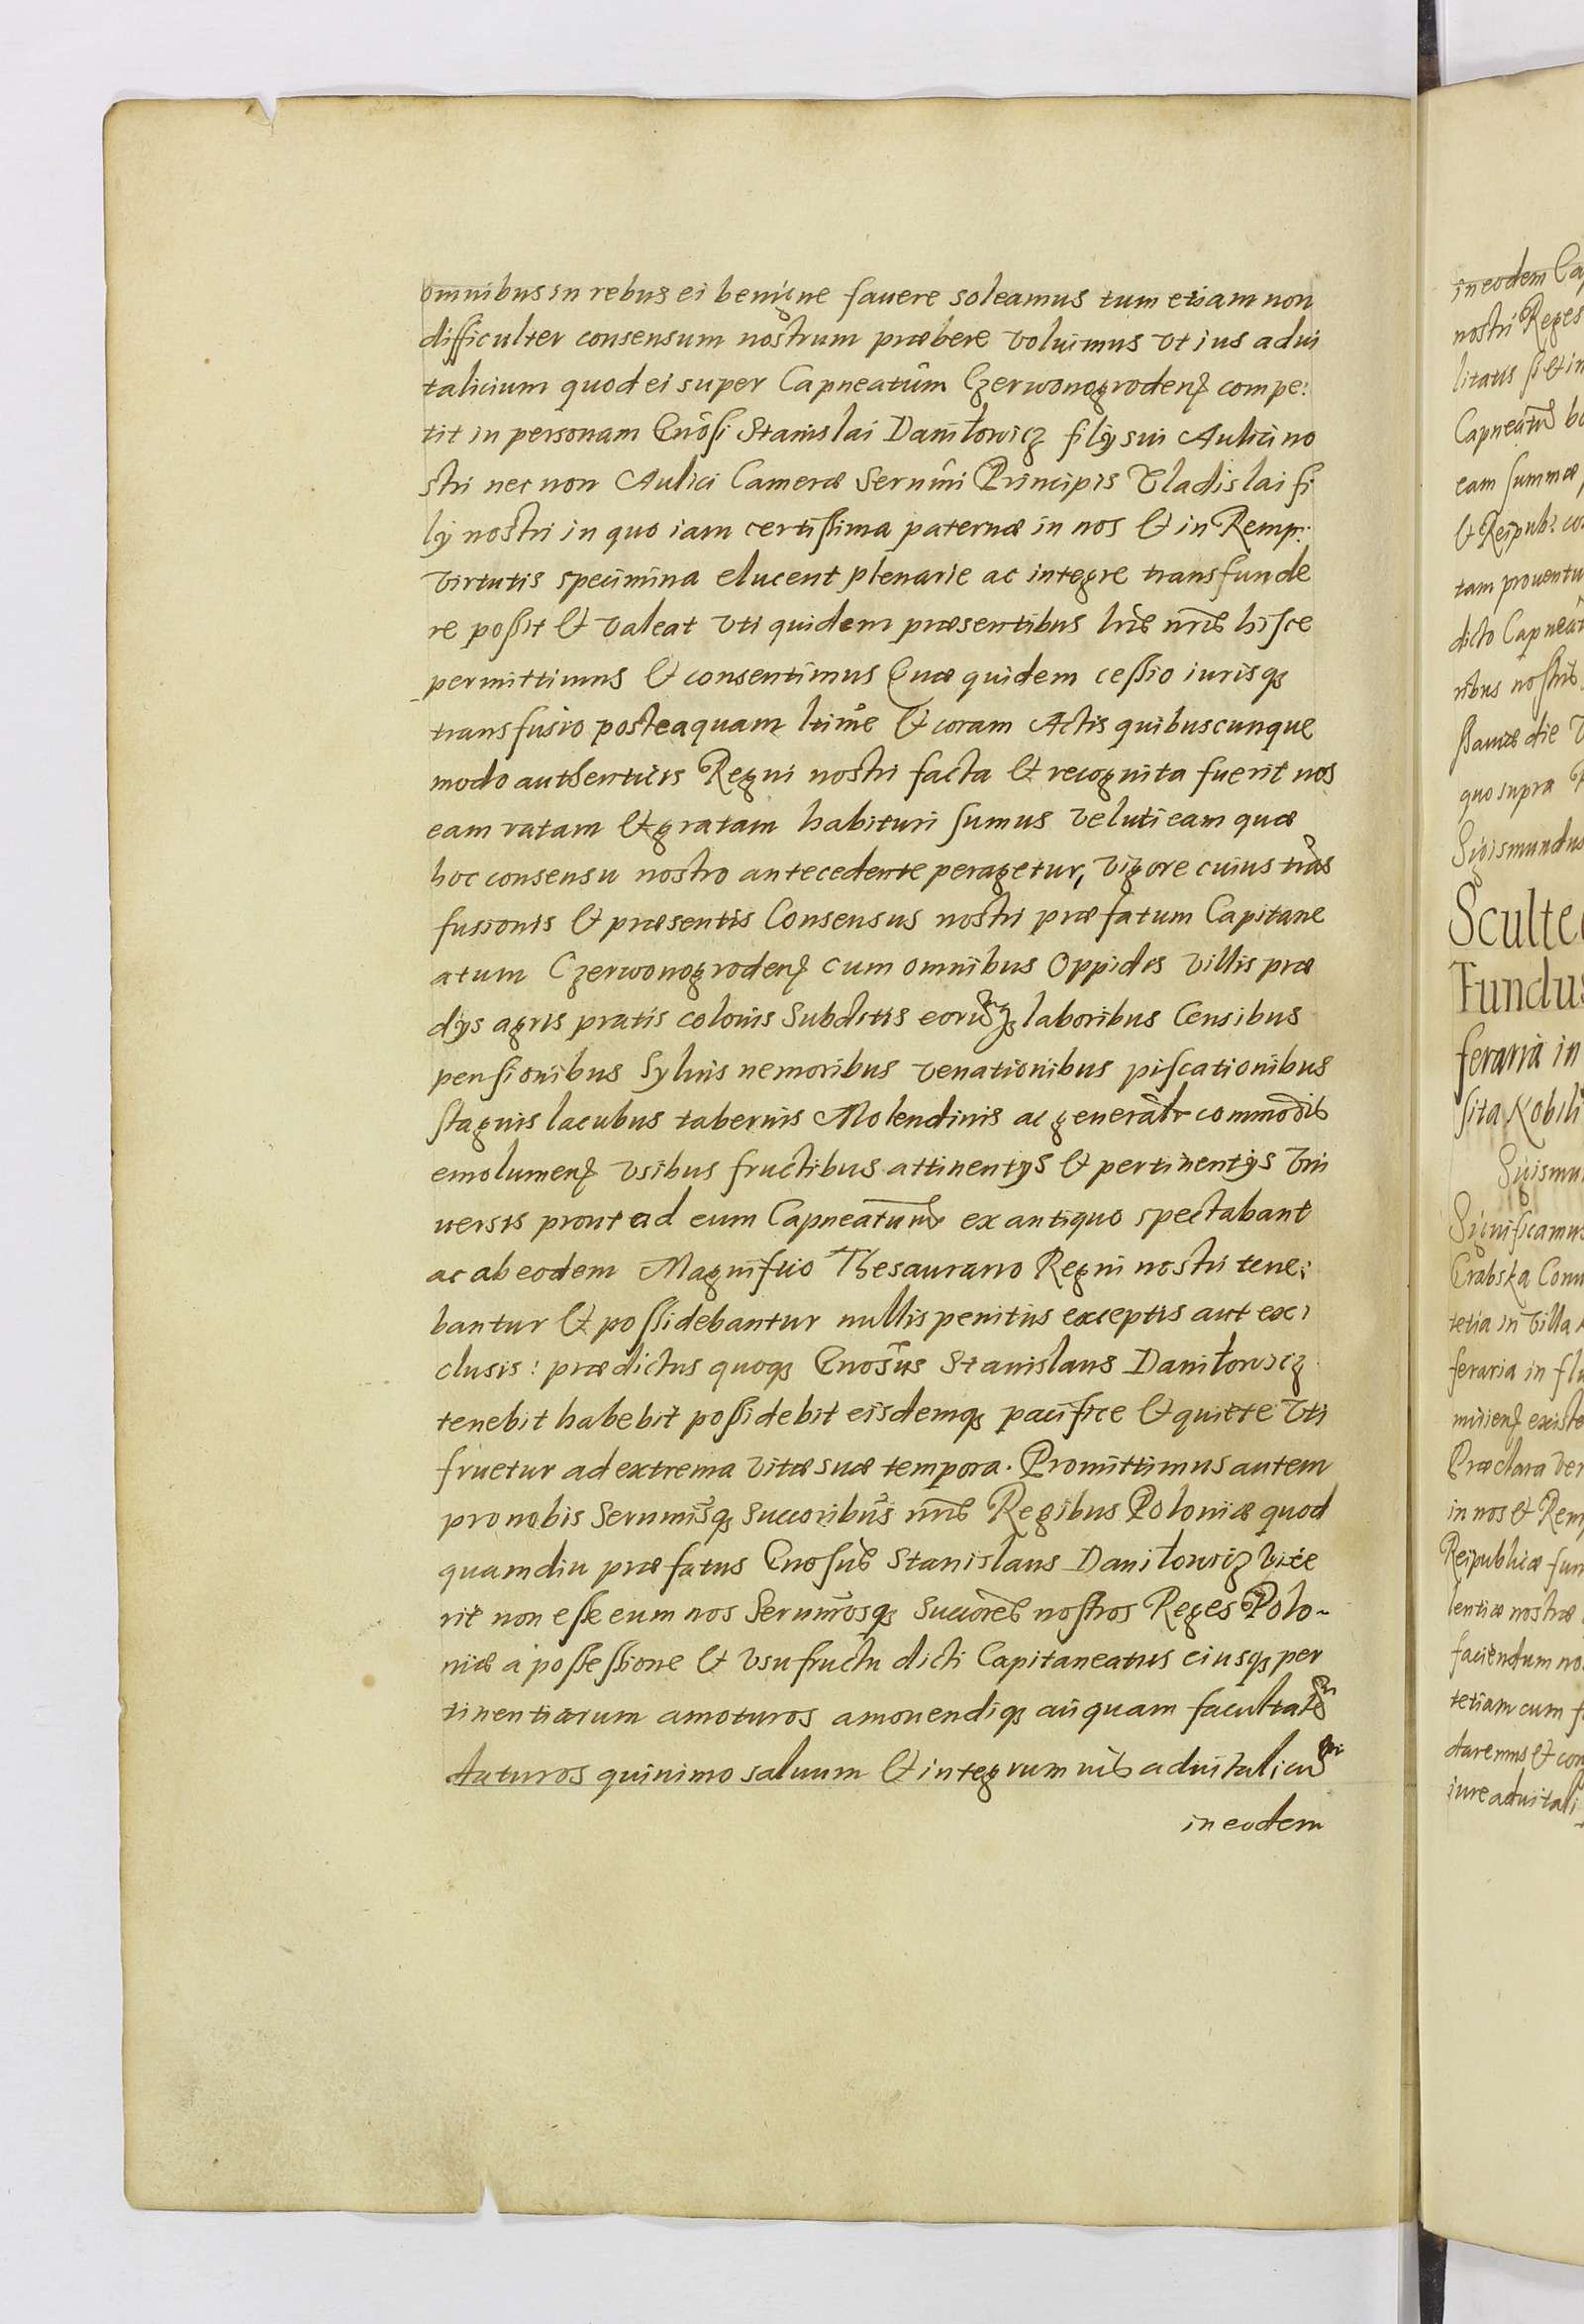 omnibus in rebus ei benigne fauere soleamus tum etiam non
difficulter consensum nostrum præbere voluimus vt ius adui
talicium quod ei super Capneatûm Czerwonogrodenß compe:
tit in personam Gnôsi Stanislai Daniłowicz filÿ sui Aulici no
stri nec non Aulici Cameræ Sernmî Principis Vladislai fi
lÿ nostri in quo iam certissima paternæ in nos et in Remp:
virtutis specimina elucent plenarie ac integre transfunde
re possit et valeat vti quidem præsentibus lris nris hisce
permittimus et consentimus Quæ quidem cessio iurisq3
transfusio posteaquam ltime et coram Actis quibuscunque
modo authenticis Regni nostri facta et recognita fuerit nos
eam ratam et gratam habituri sumus veluti eam quæ
hoc consensu nostro antecedente peragetur, vigore cuius trãs
fusionis et præsentis Consensus nostri præfatum Capitane
atum Czerwonogrodenß cum omnibus Oppidis villis præ
dÿs agris pratis colonis Subditis eorumq3 laboribus Censibus
pensionibus Syluis nemoribus venationibus piscationibus
stagnis lacubus tabernis Molendinis ac generalr commodis
emolumenß vsibus fructibus attinentÿs et pertinentÿs vni
uersis prout ad eum Capneatum ex antiquo spectabant
ac ab eodem Magnifico Thesaurario Regni nostri tene:
bantur et possidebantur nullis penitus exceptis aut ex:
clusis: prædictus quoq3 Gnosus Stanislaus Daniłowicz
tenebit habebit possidebit eisdemq3 pacifice et quiete vti
fruetur ad extrema vitæ suæ tempora. Promittimus autem
pro nobis Sernmisq3 Succoribus nris Regibus Poloniæ quod
quamdiu præfatus Gnosus Stanislaus Daniłowicz vixe
rit non esse eum nos Sernmosq3 Succores nostros Reges Polo-
niæ a possessione et vsufructu dicti Capitaneatus eiusq3 per
tinentiarum amoturos amouendiq3 aliquam facultatem
daturos quinimo saluum et integrum ius aduitalicium
in eodem
in eodem Cap
nostri Reges
litatis si et in
Capneatu bo
eam summæ
et Reipub: co
tam prouentu
dicto Capneat
ribus nostris
quo supra
Sigismundus
Sculte
Fundus
feraria in
sita Nobili
Sigismu
Significamus
Grabska Coni
tetia in villa
feraria in flu
existe
Præclara ver
in nos et Rem
Reipublicæ sum
lentiæ nostræ
faciendum no
tetiam cum f
daremus et con
iure aduitali